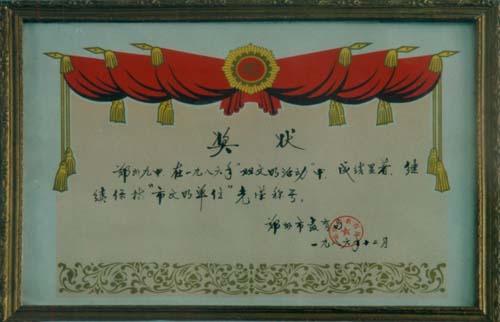 奖状
郑州九中在一九八六年"双文明活动"中,成绩显著,继
续保持"市文明单位"光荣称号。
郑州市教育局
一九八六年十二月